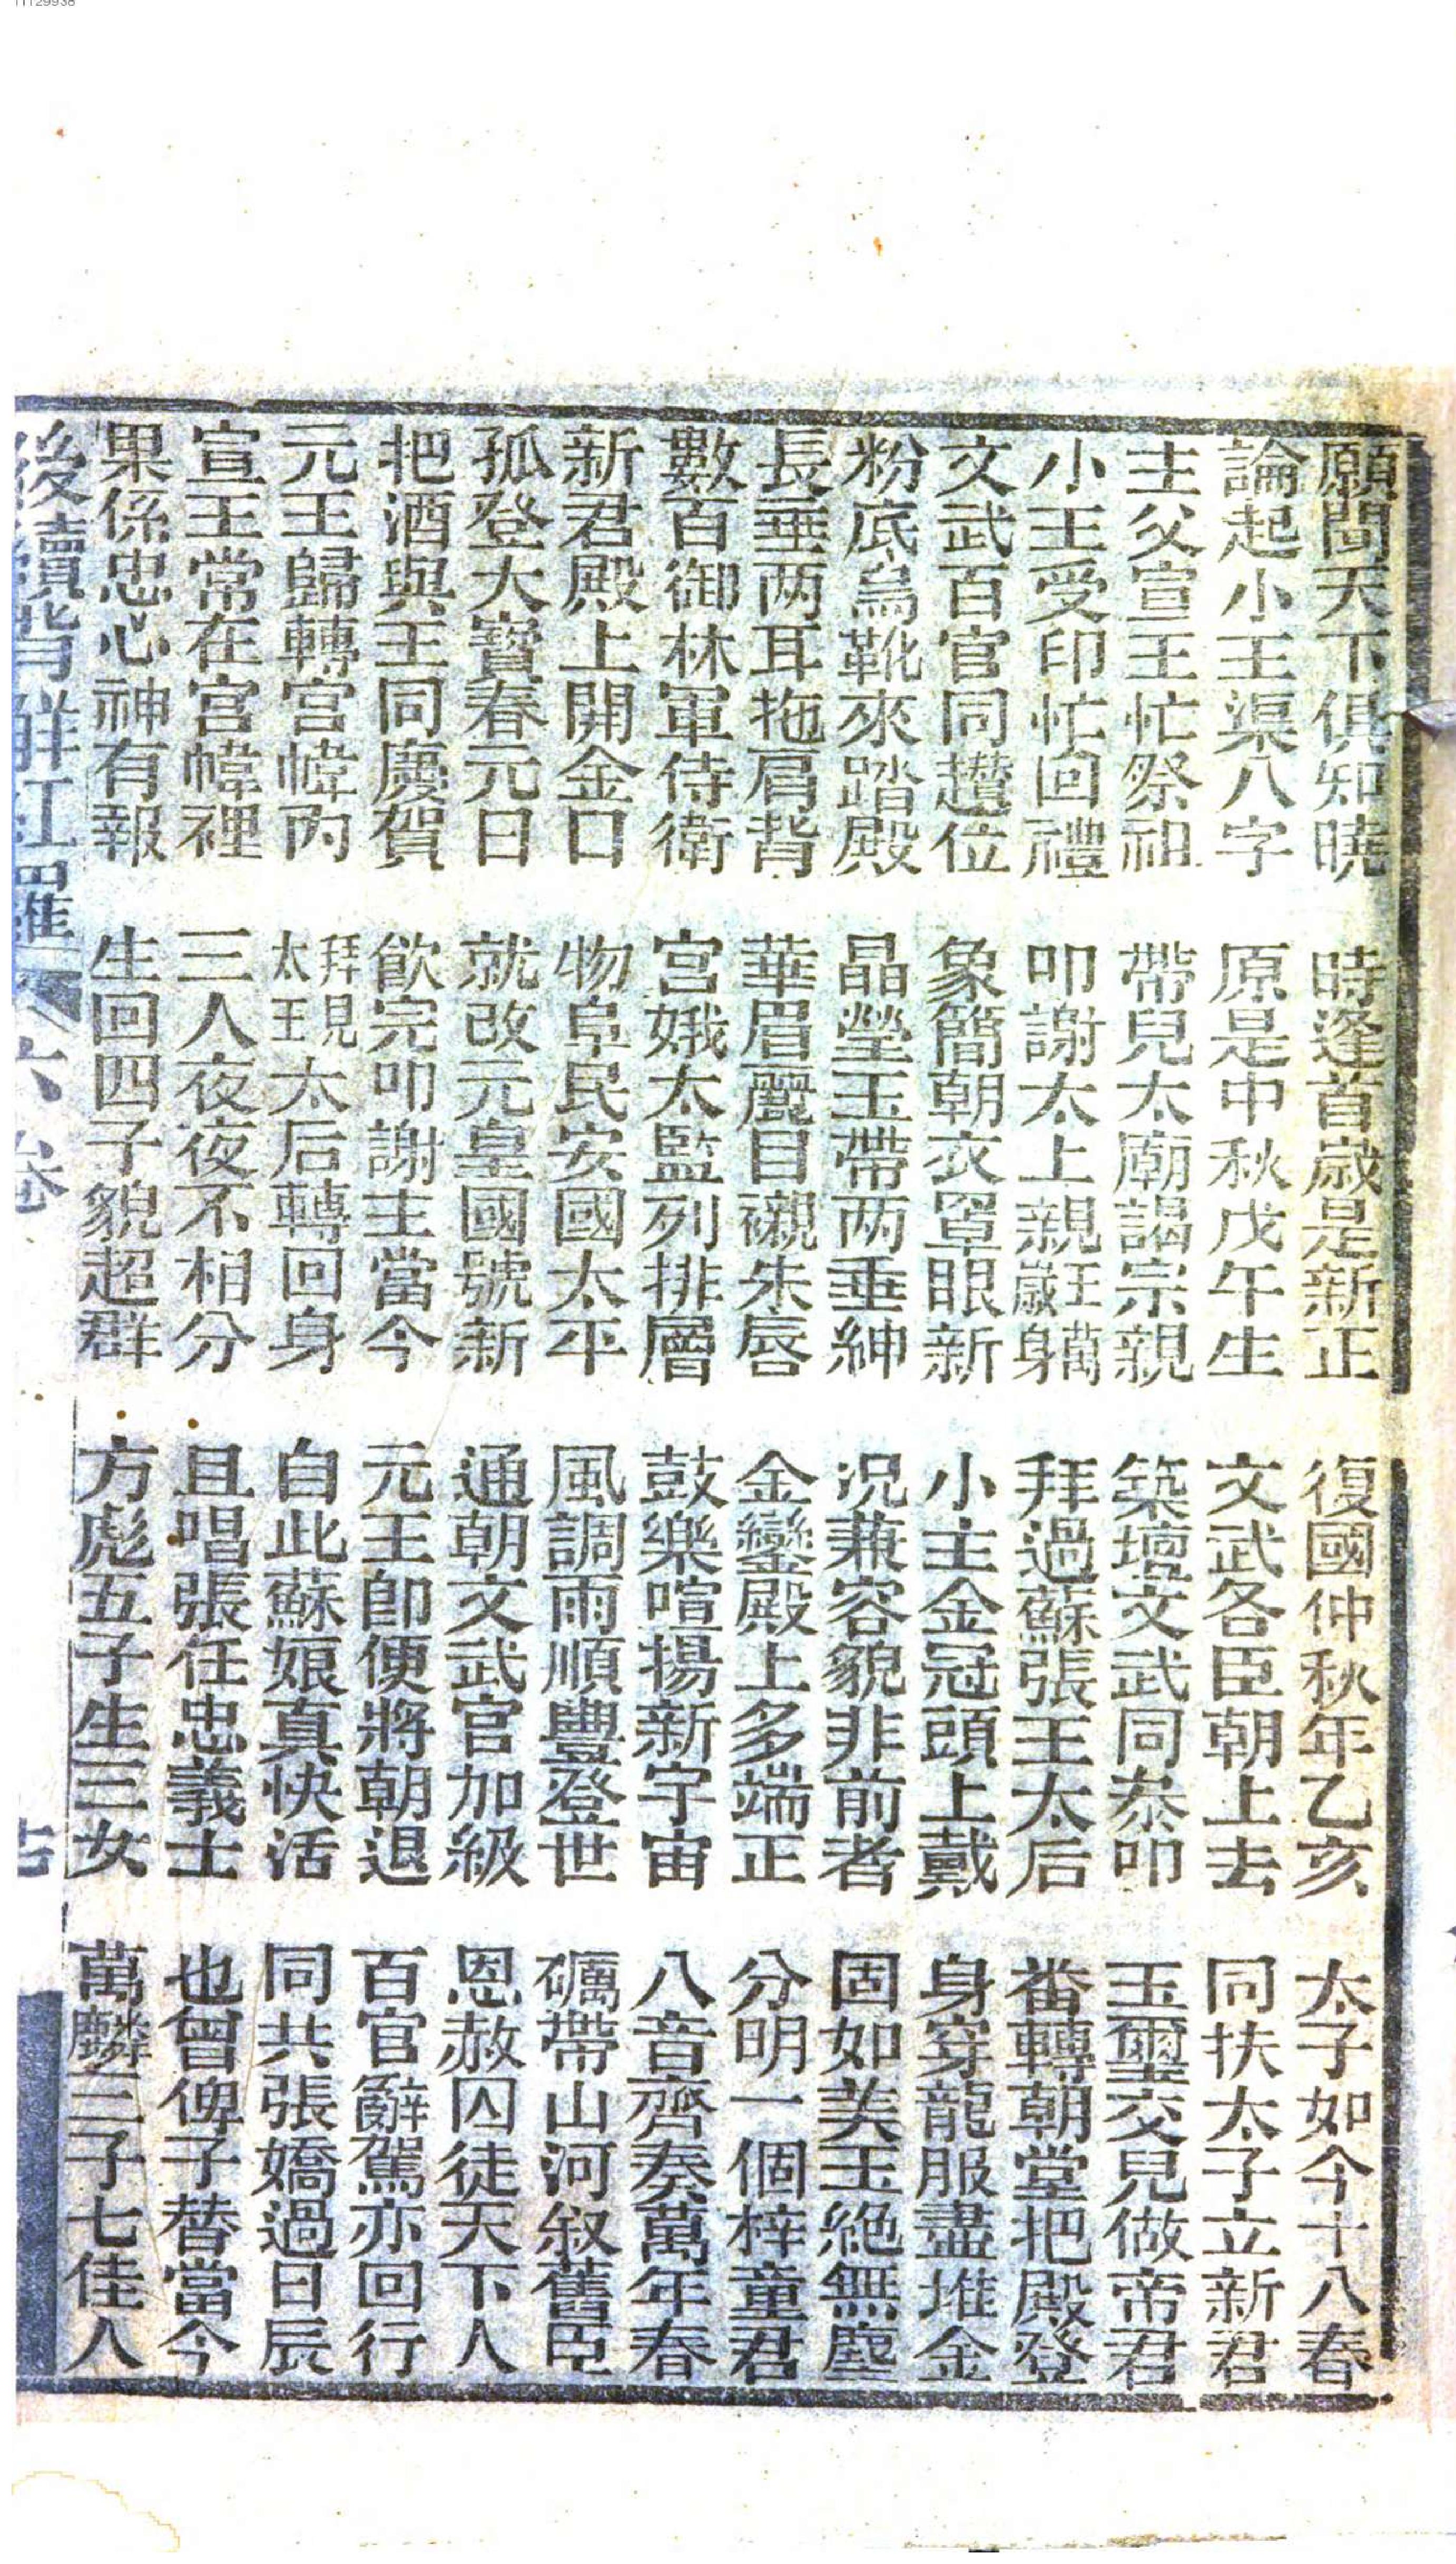 11129938
願聞天下俱知曉 時逢首歲是新正 復國仲秋年乙亥 太子如今十八春
論起小王渠八字 原是中秋戊午生 文武各臣朝上去 同扶太子立新君
主父宣王忙祭祖 帶兒太廟謁宗親 築壇文武同叅叩 玉璽交兒做帝君
小王受印忙回禮 叩謝太上親王萬歲身 拜過蘇張王太后 番轉朝堂把殿登
文武百官同趲位 象簡朝衣罩眼新 小主金冠頭上戴 身穿龍服盡堆金
粉底烏靴來踏殿 晶瑩玉帶两垂紳 況兼容貌非前者 固如美玉絶無塵
長垂两耳拖肩背 華眉麗目襯朱唇 金鑾殿上多端正 分明一個梓童君
數百御林軍侍衛 宮娥太監列排層 鼓樂喧揚新宇宙 八音齊奏萬年春
新君殿上開金口 物阜民安國太平 風調雨順豐登世 礪帶山河叙舊臣
孤登大寶春元日 就改元皇國號新 通朝文武官加級 恩赦囚徒天下人
把酒與王同慶賀 飲完叩謝主當今 元王卽便將朝退 百官辭駕亦回行
元王歸轉宮幃內 拜見太王太后轉回身 自此蘇娘真快活 同共張嬌過日辰
宣王常在宮幃裡 三人夜夜不相分 且唱張任忠義士 也曾俾子替當今
果係忠心神有報 生回四子貌超群 方彪五子生三女 萬麟三子七佳人
後續背解紅羅 六卷